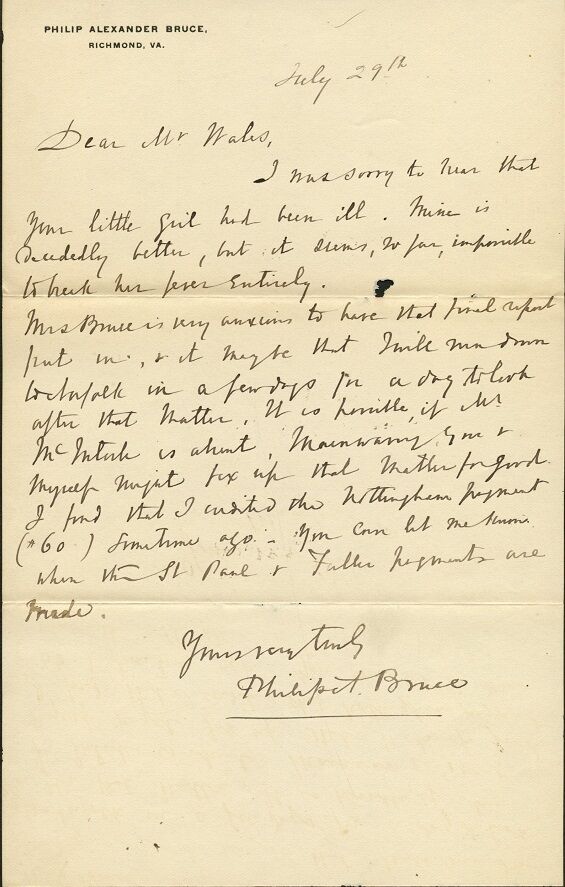 PHILIP ALEXANDER BRUCE,
RICHMOND, VA.
July 29th
Dear Mr Wales,
I was sorry to hear that
your little girl had been ill. Mine is
decededly better, but it seems, so far, impossible
to break her fever entirely.
Mrs Bruce is very anxious to have that final report
put in, & it may be that I will run down
to Norfolk in a few days for a day to look
after that matter. It is possible, if Mr
McIntosh is absent, Mainwaring, you &
myself might fix up that matter for good.
I find that I credited the Nottingham payment
($60) sometime ago. - You can let me know
when the St Paul & Fuller payments are
made.
Yours very truly
Philip A. Bruce